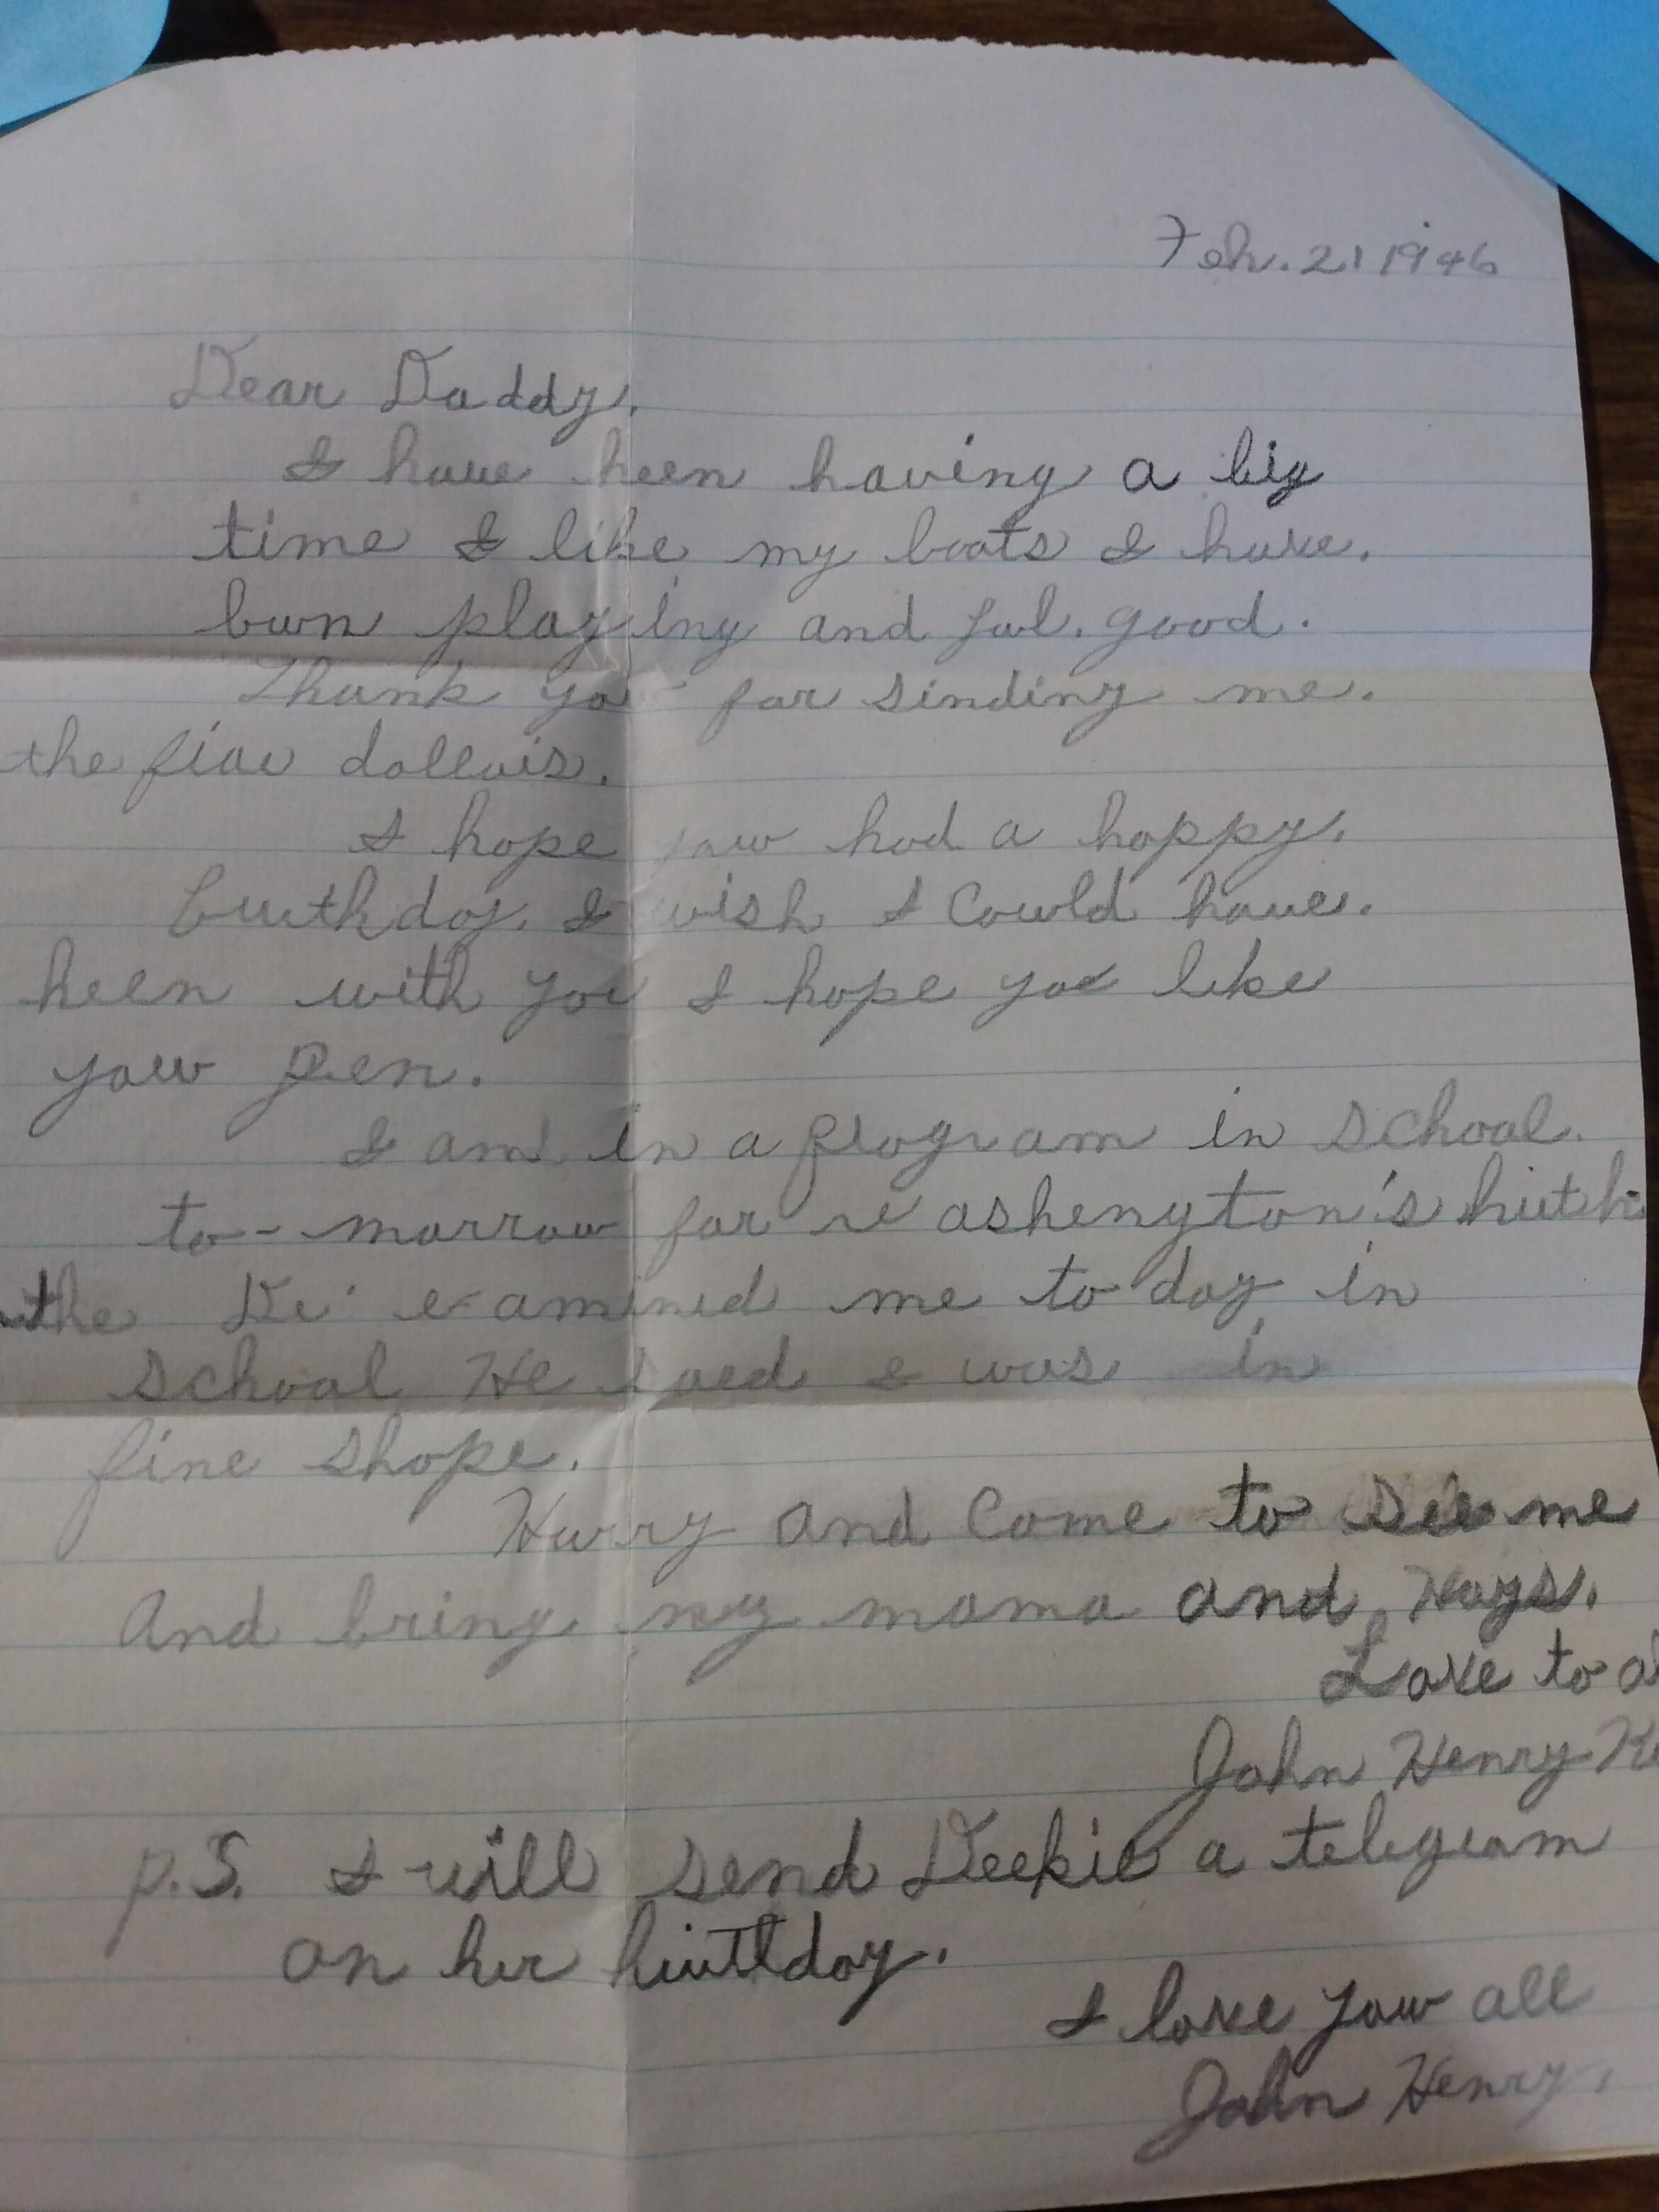 Feb. 21 1946
Dear Daddy.
I have been having a big
time I like my boats I have.
been playing and feel. good.
Thank you for sinding me.
the five dollars.
I hope you had a happy.
birthday. I wish I could have.
been with you I hope you like
your pen.
I am in a program in school.
to-morrow for washengton's birth
the Dr. examined me to day in
school He saed I was in
fine shape.
Hurry and come to see me
And bring my mama and Hays.
Love to
John Henry
P.S. I will send Deekie a telegram
on her birthday.
I love you all
John Henry.